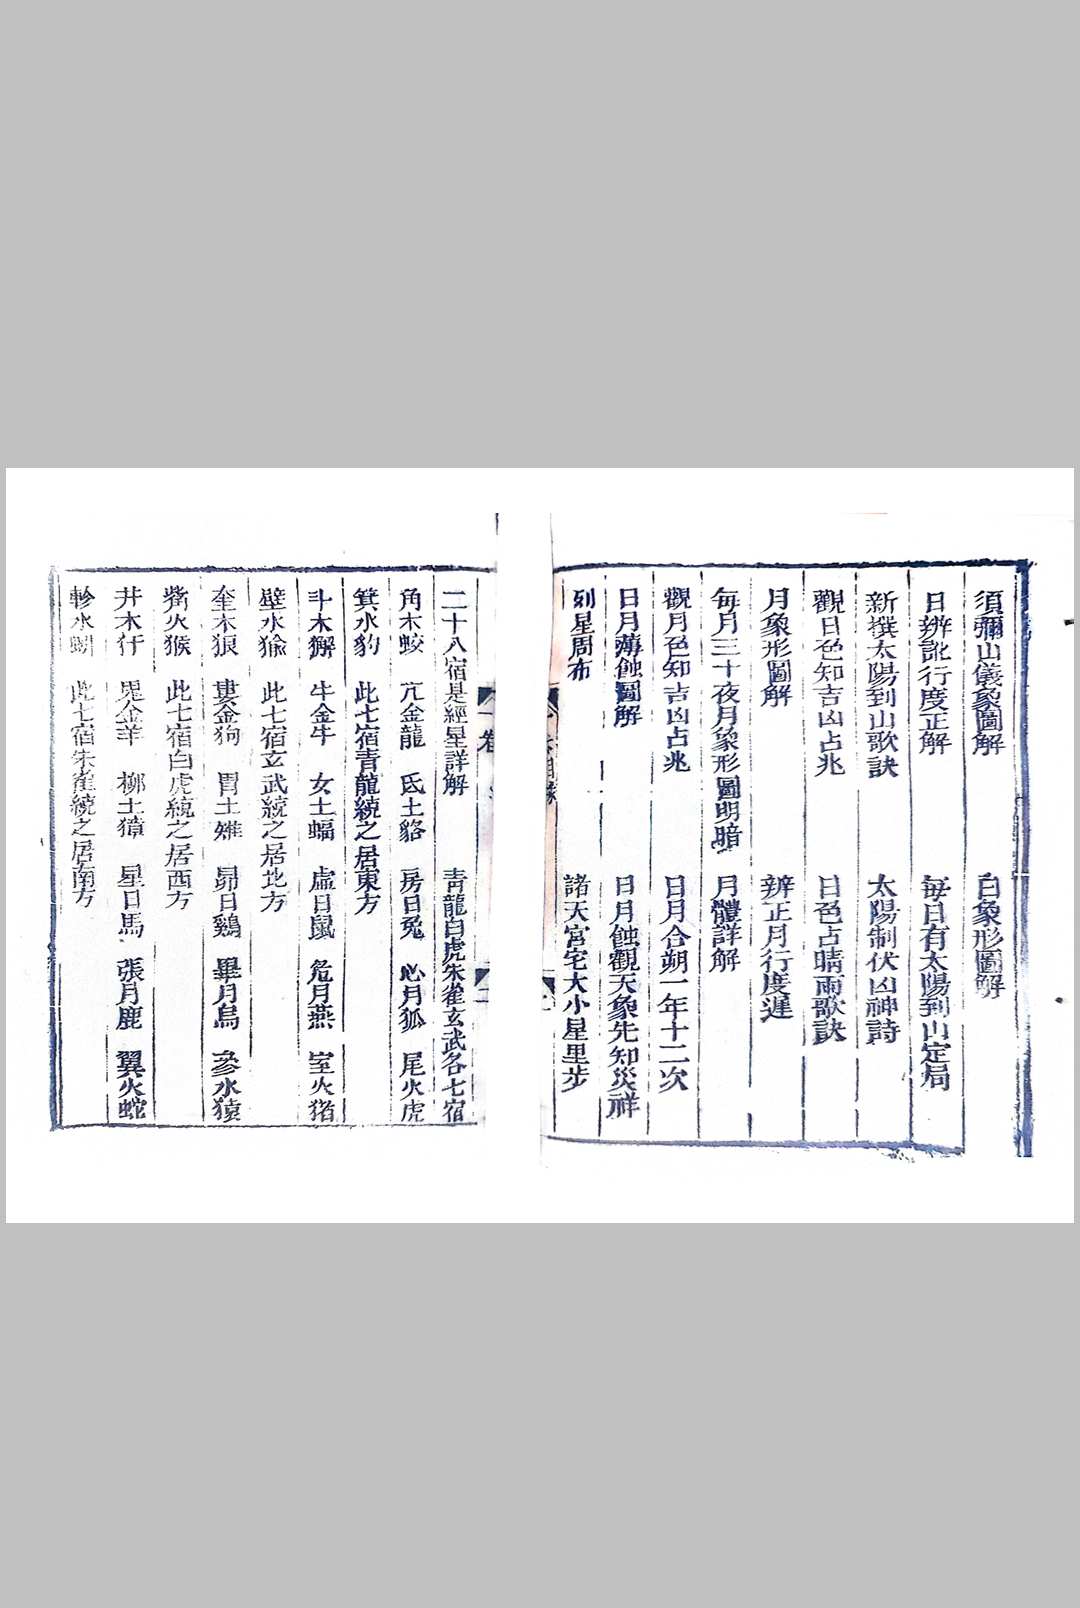 須彌山儀象圖解　日象形圖解
日辨訛行度正解　每日有太陽到山定局
新撰太陽到山歌訣　太陽制伏凶神詩
觀日色知吉凶占兆　日色占晴雨歌訣
月象形圖解　辨正月行度遲
每月三十夜月象形圖明暗　月體詳解
觀月色知吉凶占兆　日月合朔一年十二次
日月薄蝕圖解　日月蝕觀天象先知災祥
列星周布　諸天宮宅大小星里步
一卷
二
二十八宿是經星詳解　青龍白虎朱雀玄武各七宿
角木蛟　亢金龍　氐土貉　房日兔　心月狐　尾火虎
箕水豹　此七宿青龍統之居東方
斗木獬　牛金牛　女土蝠　虛日鼠　危月燕　室火猪
壁水㺄　此七宿玄武統之居北方
奎木狼　婁金狗　胃土雉　昴日鷄　畢月烏　參水猿
觜火猴　此七宿白虎統之居西方
井木犴　鬼金羊　柳土獐　星日馬　張月鹿　翼火蛇
軫水蚓　此七宿朱雀統之居南方